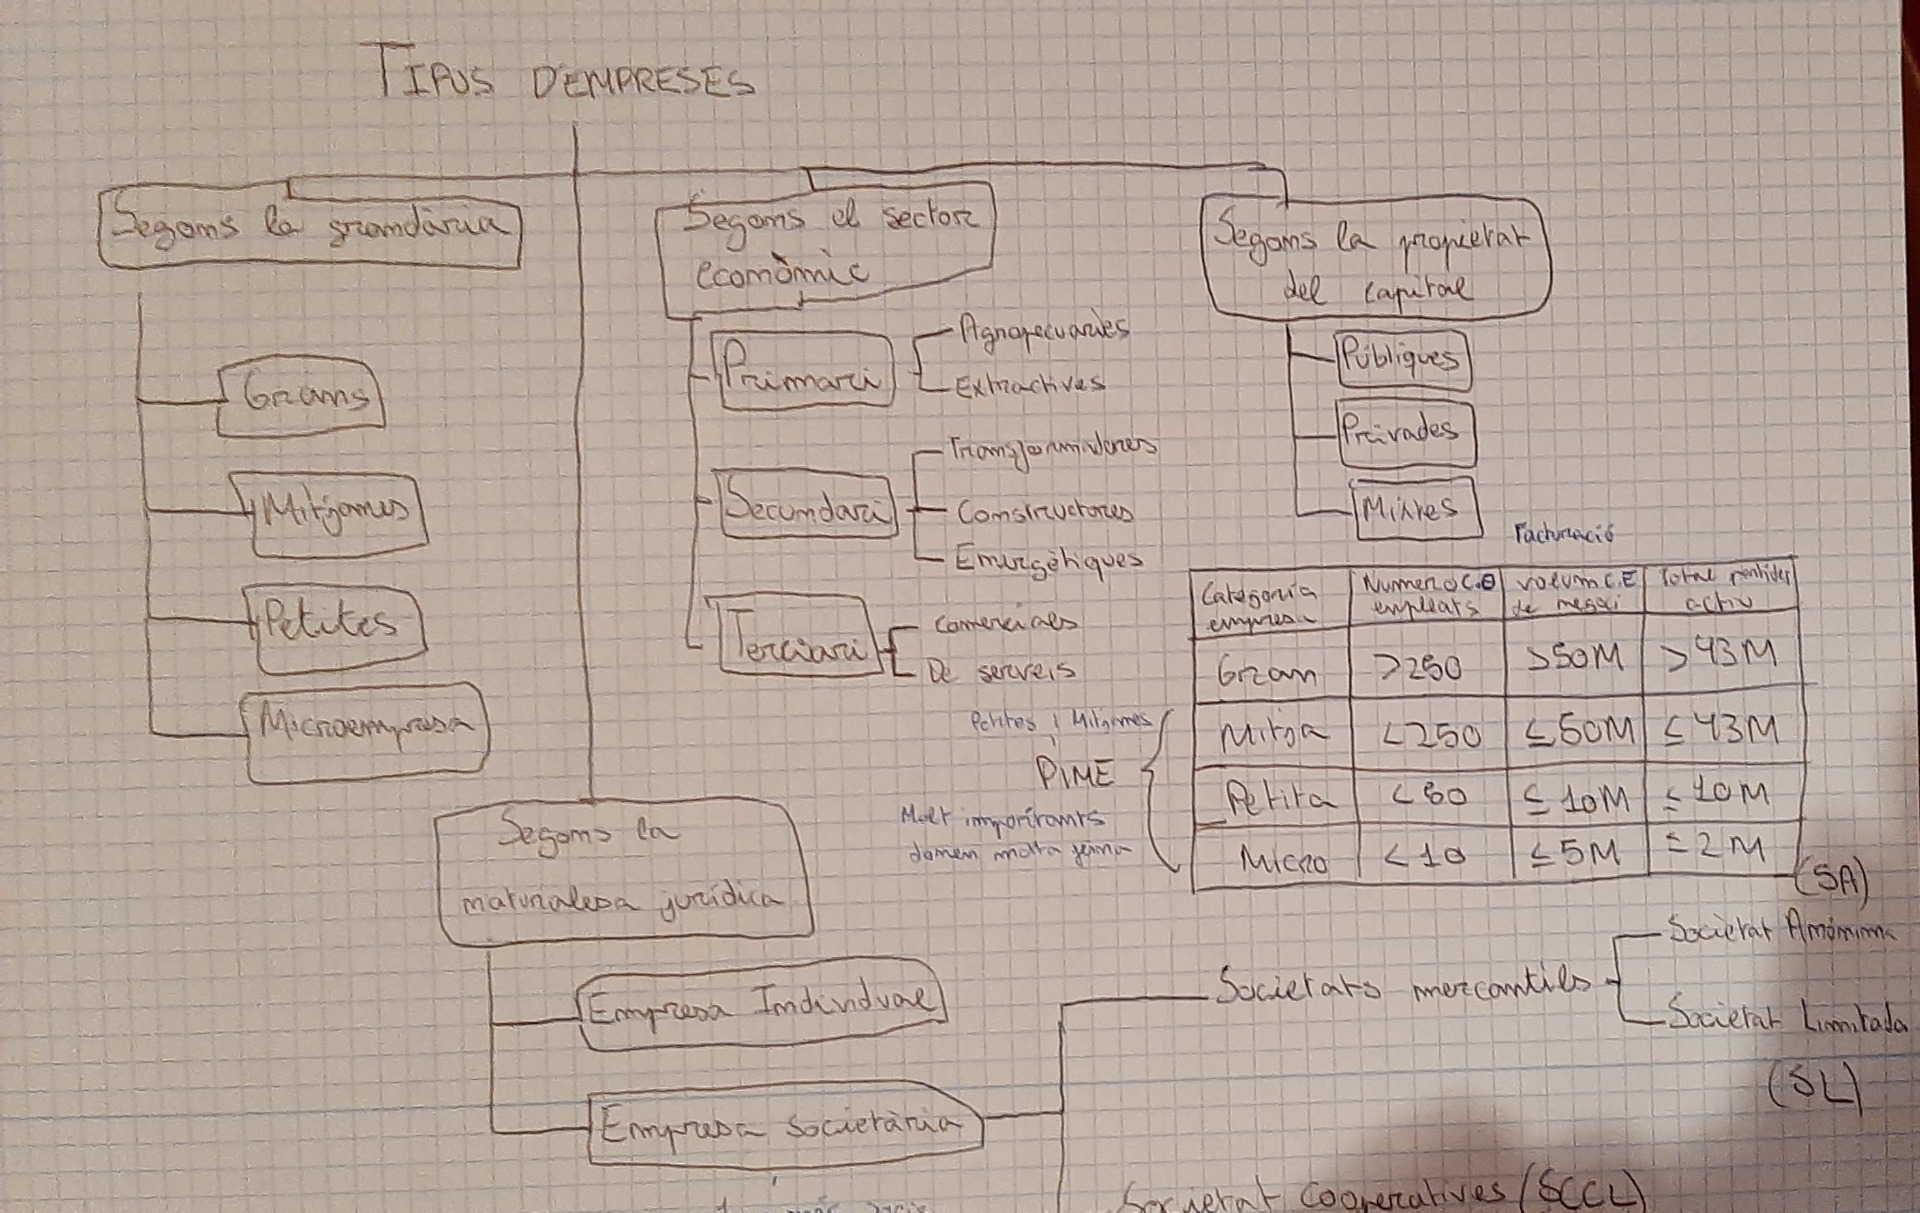 TIPUS D'EMPRESES
Segons la grandària
Grans
Mitjanes
Petites
Microempresa
Segons el sector
econòmic
Primari
Agropecuaries
Extractives
Secundari
Transformadores
Constructores
Energètiques
Terciari
Comercials
De serveis
Segons la propietat
del capital
Públiques
Privades
Mixtes
Facturació
Categoria empresa | Numero empleats | Volum de negoci | Total partides actiu
Gran | >250 | >50M | >43M
Mitja | <250 | ≤50M | ≤43M
Petita | <50 | ≤10M | ≤10M
Micro | <10 | ≤5M | ≤2M
Petites i Mitjanes
PIME
Molt importants
donen molta feina
Segons la
naturalesa jurídica
Empresa Individual
Empresa societària
Societats mercantils
(SA)
Societat Anònima
Societat Limitada
(SL)
Societat Cooperatives (SCCL)